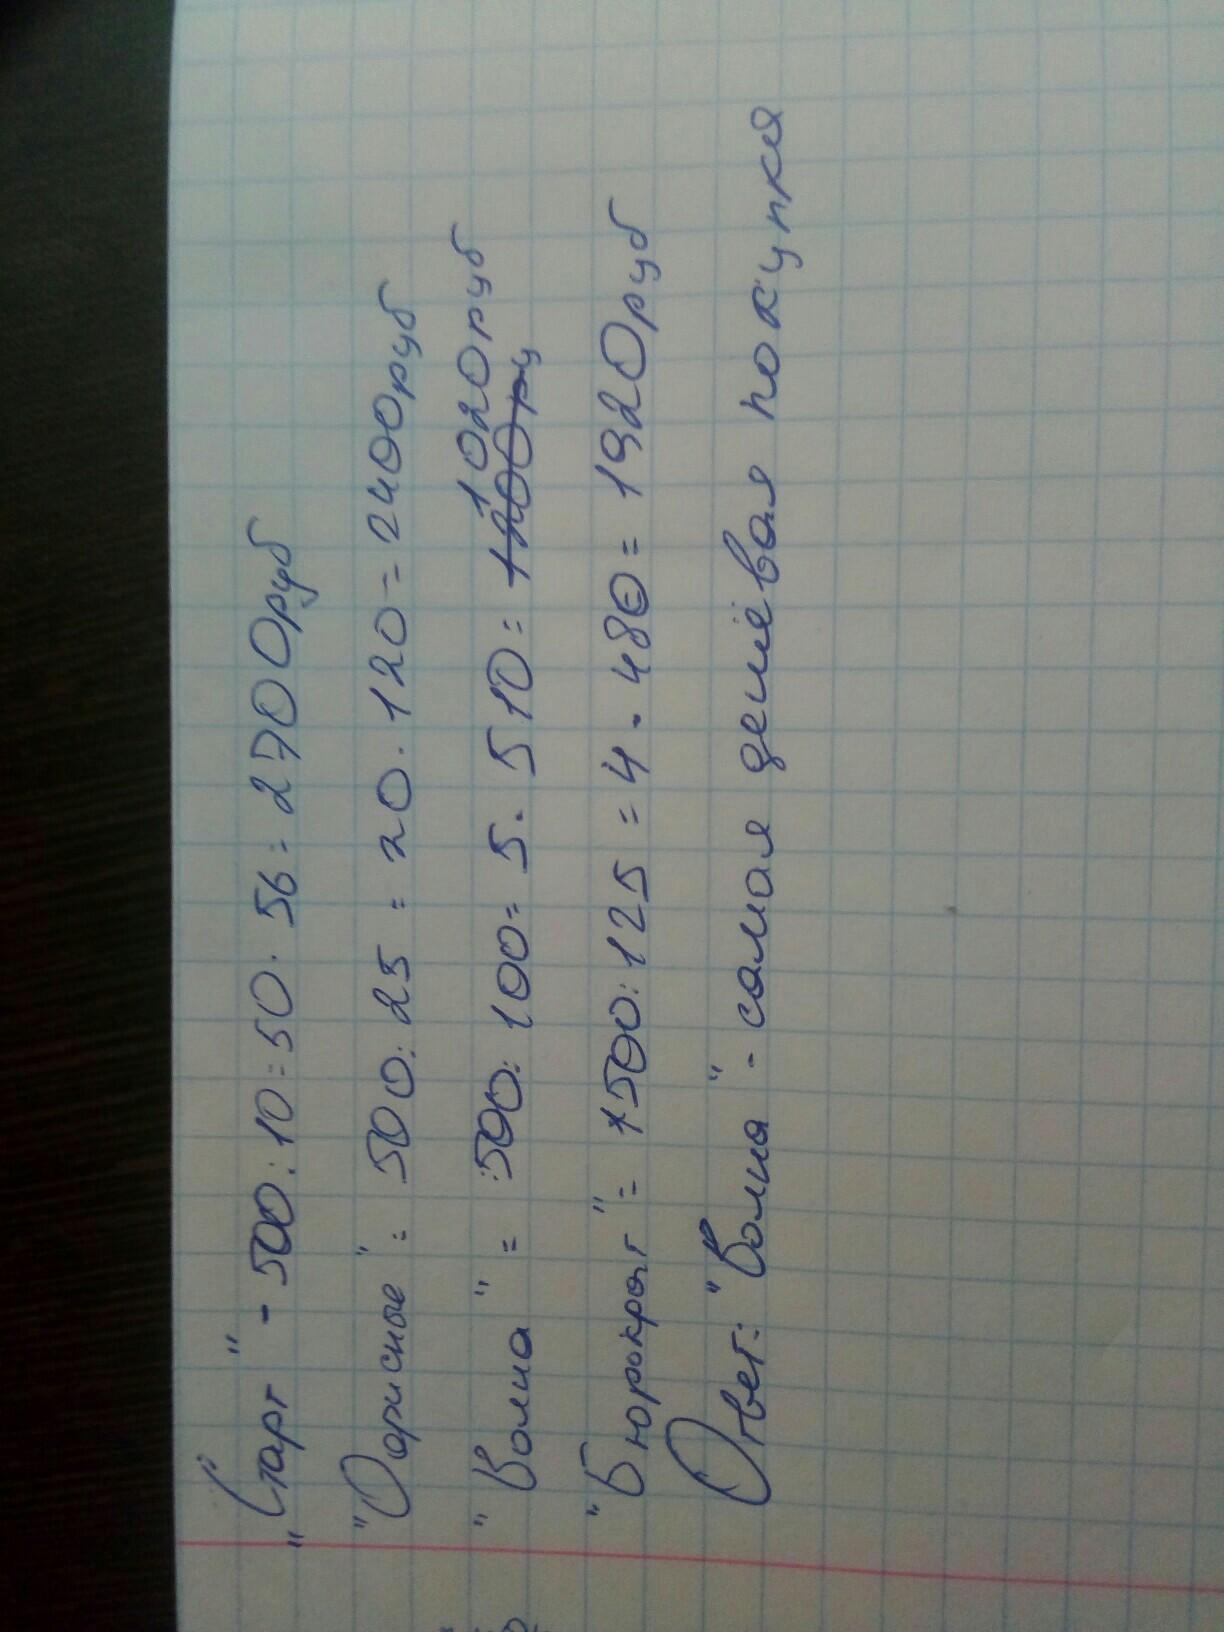 "Старт" - 500:10=50·56=2700руб
"Оорисные"= 500:25=20·120=2400руб
"Волна"= 500:100=5·510= 1200ру 1020руб
"Бюрократ"= 1500:125=4·480=1920руб
Ответ: "Волна" - самая дешёвая покупка